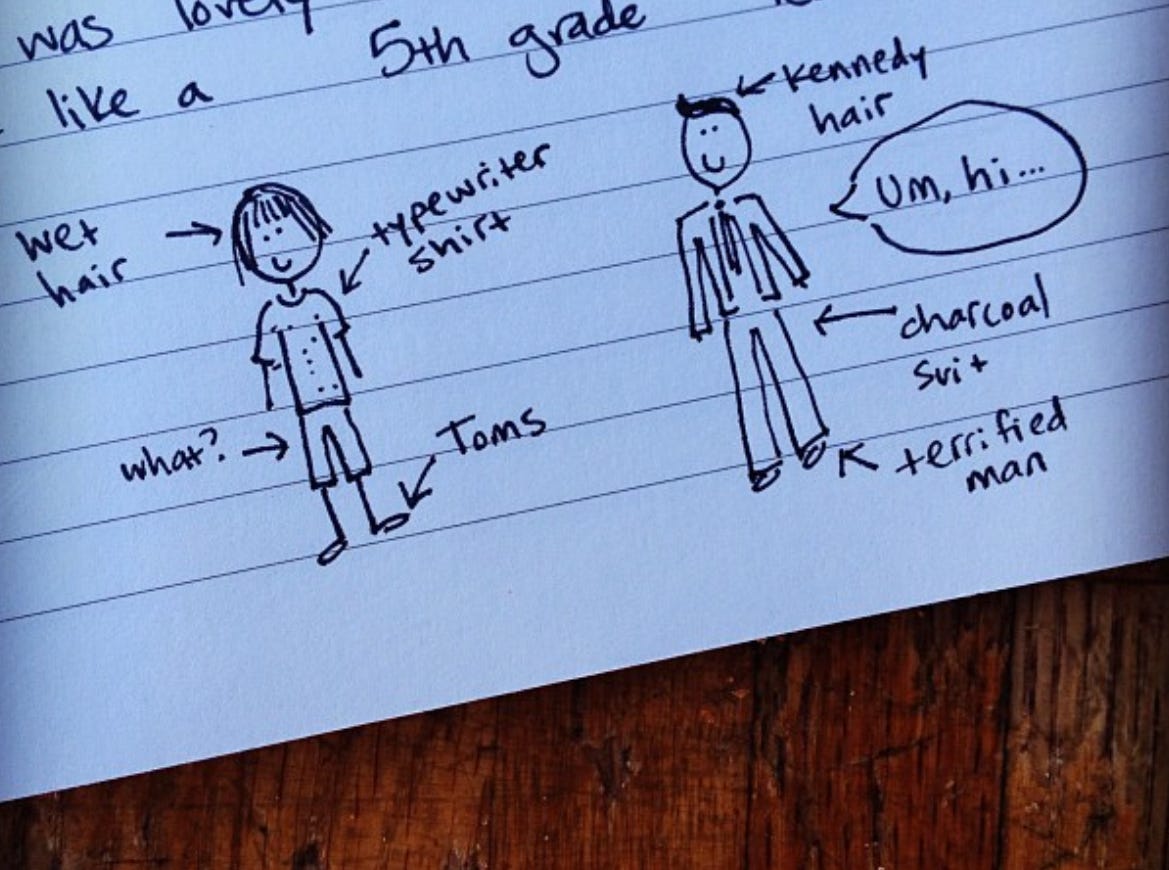 was lovely
like a 5th grade
Kennedy
hair
Um, hi...
wet
hair
typewriter
shirt
charcoal
suit
what?
Toms
terrified
man